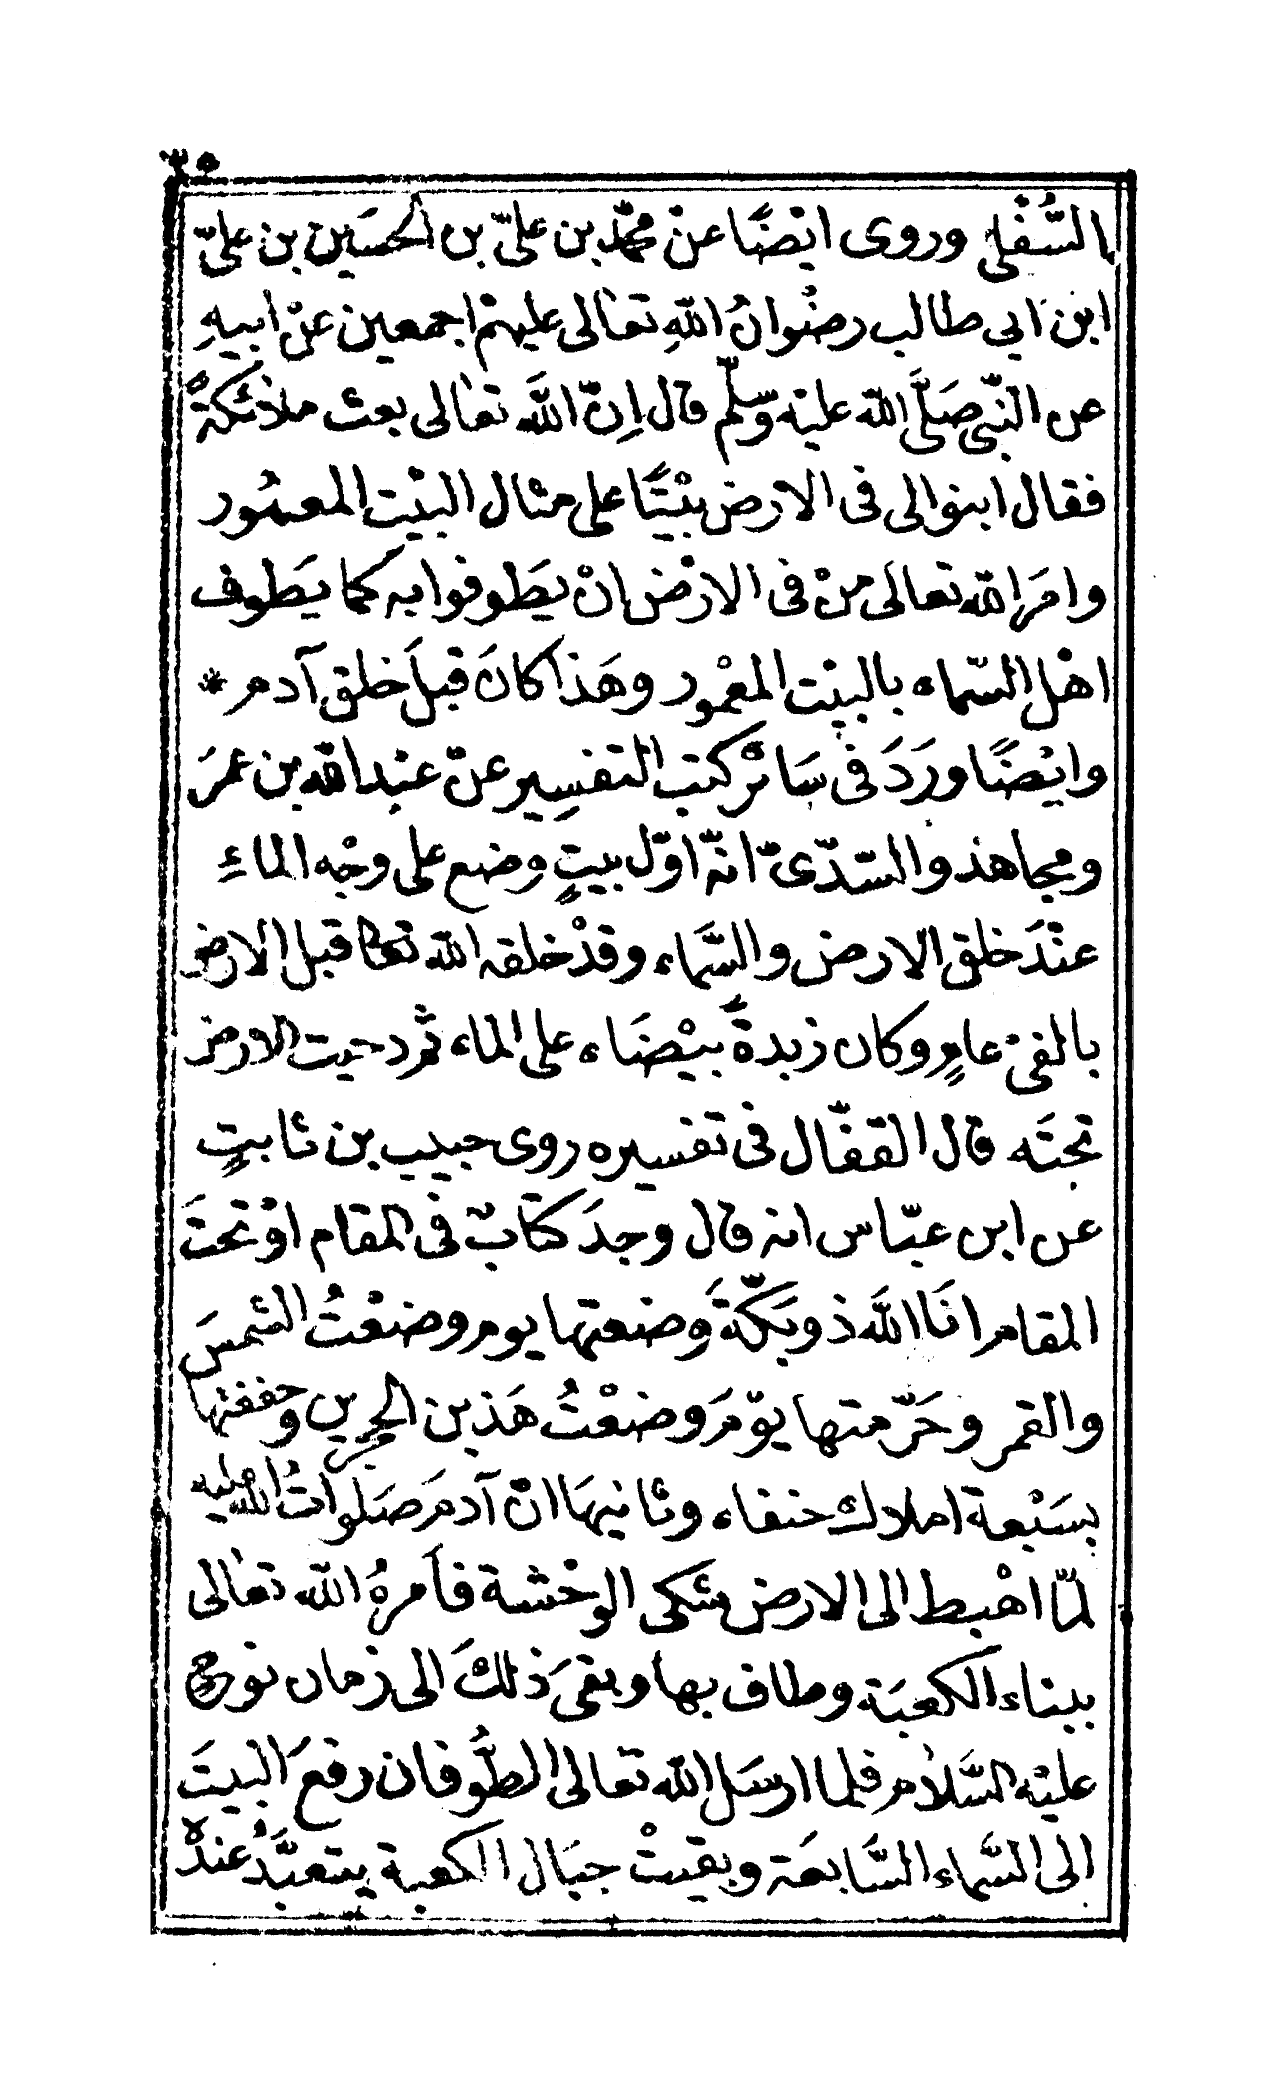 ٣٥
بالسُّفْلى وروى ايْضًا عنْ محمّد بن علىّ بن الحسَين بن علىّ
ابن ابى طالب رضْوانُ اللهِ تعَالى عليهمْ اجمعين عنْ ابيهِ
عن النّبى صَلَّى الله عليْه وَسلّم قال اِنّ اللَّهَ تعَالى بعث ملائكةً
فقال ابنوا لى فى الارض بيْتًا على مثال البيْت المعمُور
وامَر الله تعالى منْ فى الارْض انْ يطَوفوا به كما يطَوف
اهْل السّماء بالبيْت المعْمور وهَذا كانَ قبلَ خلق آدم *
وايْضًا ورَدَ فى سَائر كتب التفسِير عنْ عبْد الله بن عمرَ
ومجاهد والسّدّىّ انّه اوّل بيتٍ وضع على وجْه الماءِ
عنْدَ خلق الارض والسَّماء وقدْ خلقه الله تعالى قبل الارض
بالفىْ عامٍ وكان زبدةً بيْضَاء على الماء ثمّ دحيت الارض
تحتَه قال القفّال فى تفسيره روى حبيب بن ثابتٍ
عن ابن عبّاس انه قال وجدَ كتابٌ فى المقام اوْ تحتَ
المقام انَا اللَه ذو بَكّةَ وَضعتها يوم وضعْتُ الشمسَ
والقمر وحَرّمتها يوْمَ وضعْتُ هَذين الحجرين وحففتها
بسَبْعة املاك حنفاء وثانيهَا انّ آدمَ صَلواتُ الله عليه
لمّا اهْبط الى الارض شكى الوحْشة فأمرهُ الله تعَالى
ببناء الكعبَة وطاف بها وبقىَ ذلكَ الى زمان نوح
عليْه السَّلام فلما ارسَل الله تعالى الطُّوفان رفعَ البيتَ
الى السَّماء السَّابعَة وبقيتْ جبَال الكعبة يتعبَّدُ عندهُ